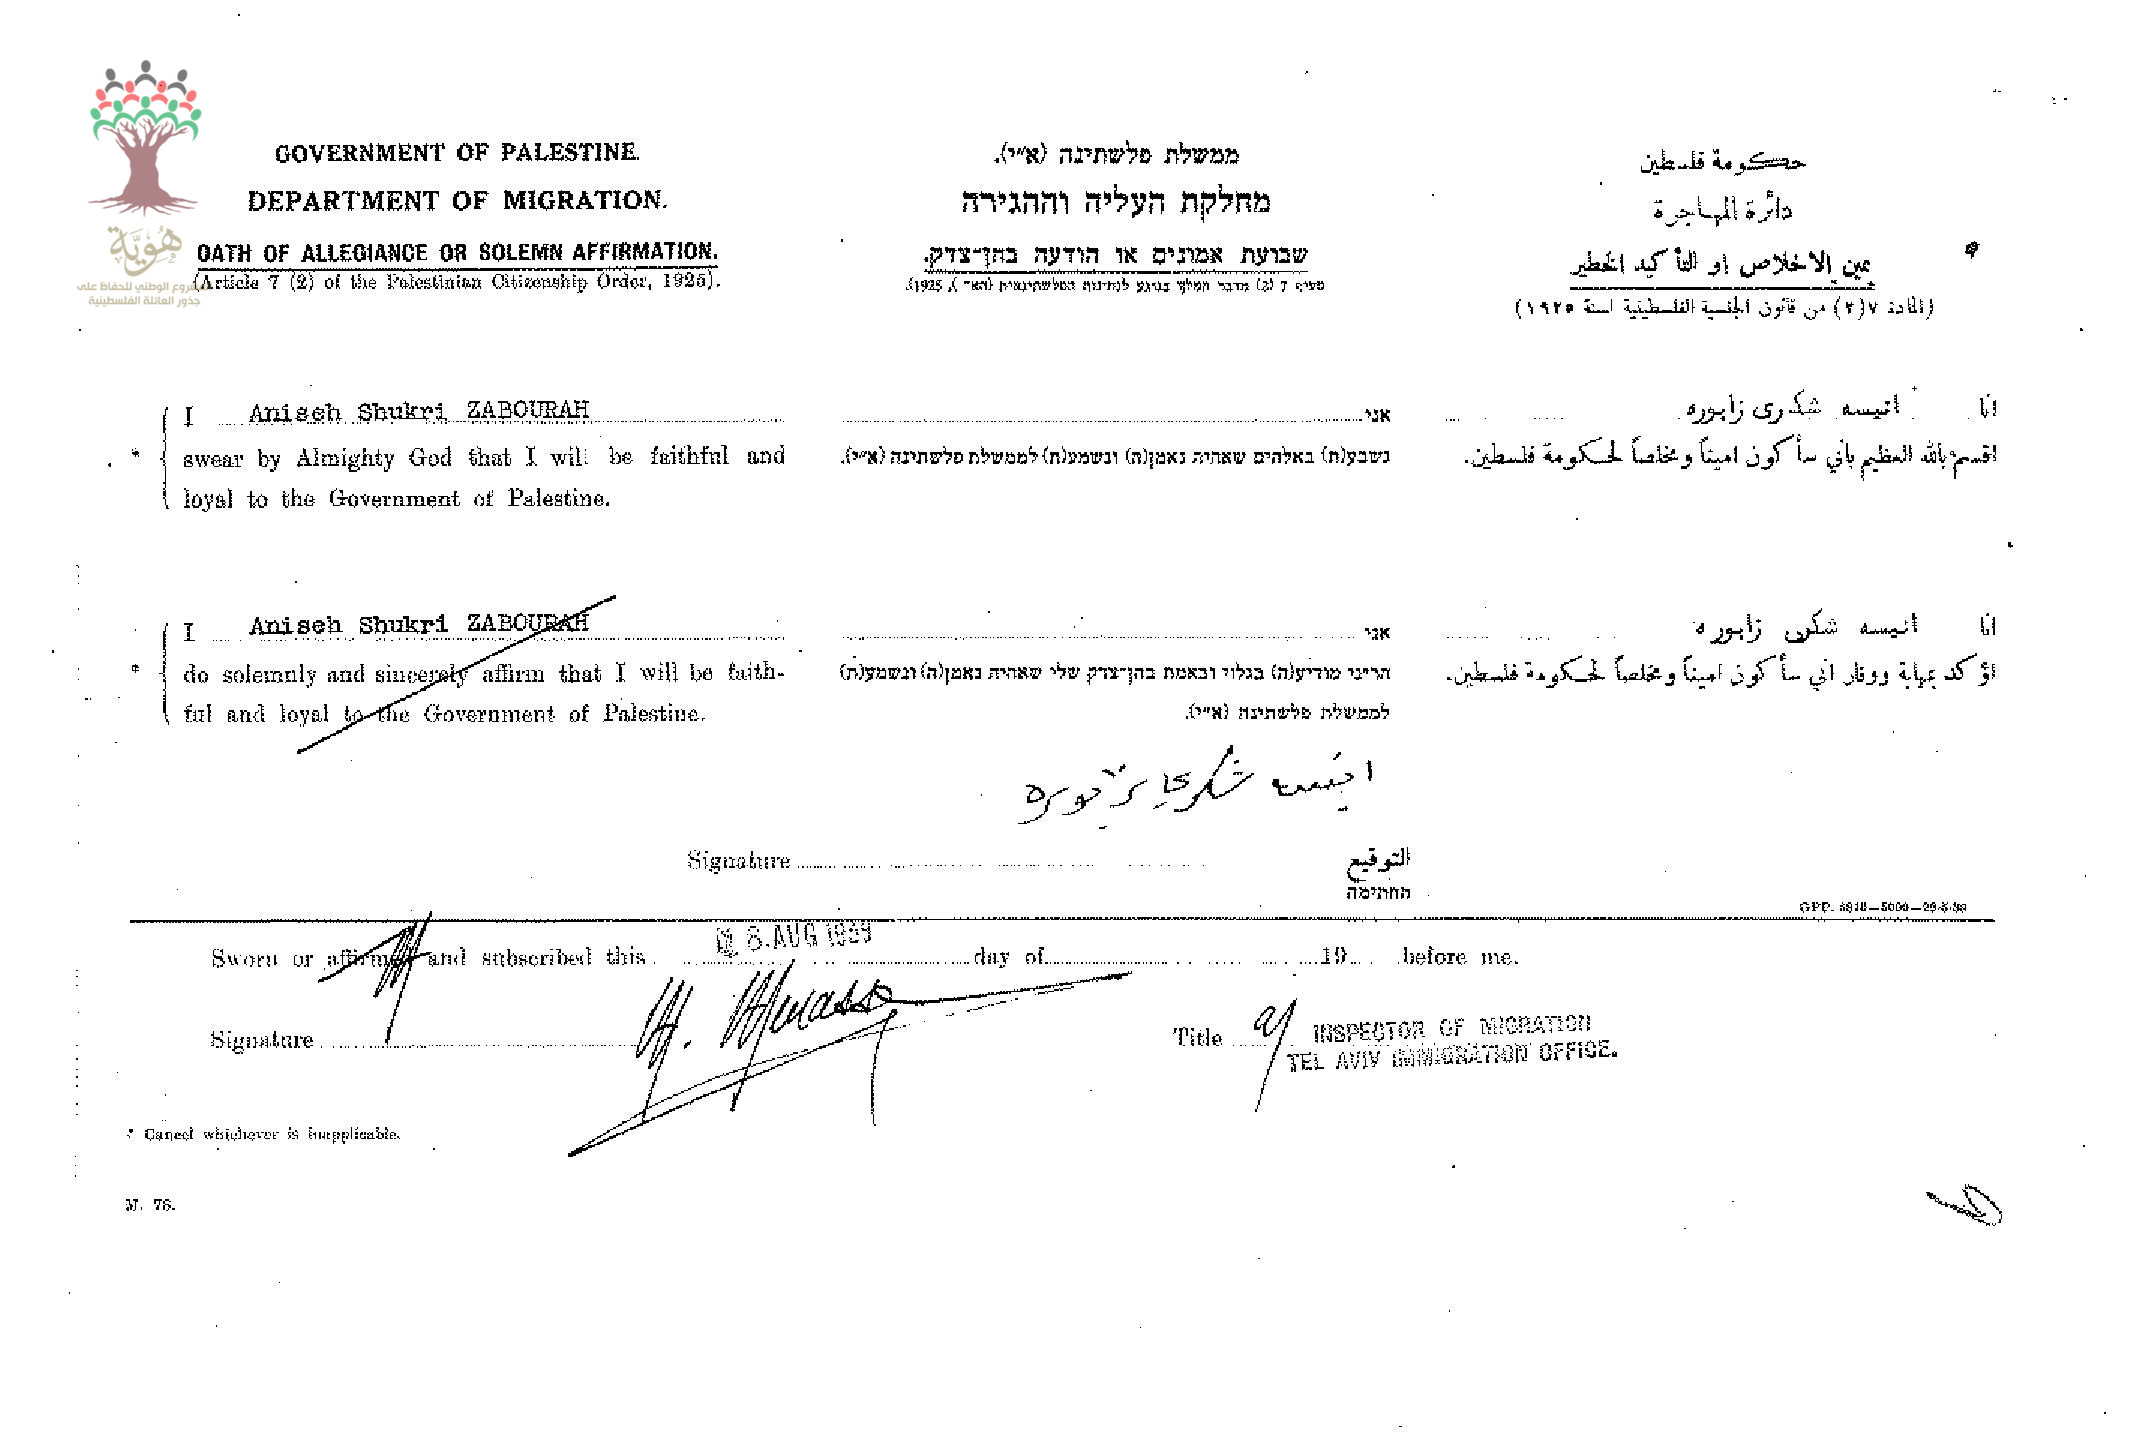 هُوِيَّة
المشروع الوطني للحفاظ على
جذور العائلة الفلسطينية
GOVERNMENT OF PALESTINE.
DEPARTMENT OF MIGRATION.
OATH OF ALLEGIANCE OR SOLEMN AFFIRMATION.
(Article 7 (2) of the Palestinian Citizenship Order, 1925).
ממשלת פלשתינה (א״י).
מחלקת העליה וההגירה
שבועת אמונים או הודעה בהן־צדק.
סעיף 7 (2) מדבר המלך בנוגע לנתינות הפלשתינאית (הא״י), 1925).
حكومة فلسطين
دائرة المهاجرة
يمين الاخلاص او التأكيد الخطير
(المادة ٧(٢) من قانون الجنسية الفلسطينية لسنة ١٩٢٥)
I Aniseh Shukri ZABOURAH
* swear by Almighty God that I will be faithful and
loyal to the Government of Palestine.
אני
נשבע(ת) באלהים שאהיה נאמן(ה) ונשמע(ת) לממשלת פלשתינה (א״י).
انا انيسه شكري زابوره
اقسم بالله العظيم بأني سأكون اميناً ومخلصاً لحكومة فلسطين.
I Aniseh Shukri ZABOURAH
* do solemnly and sincerely affirm that I will be faith-
ful and loyal to the Government of Palestine.
אני
הריני מודיע(ה) בגלוי ובאמת בהן־צדק שלי שאהיה נאמן(ה) ונשמע(ת)
לממשלת פלשתינה (א״י).
انا انيسه شكري زابوره
اؤكد بمهابة ووقار اني سأكون اميناً ومخلصاً لحكومة فلسطين.
انيسه شكري زبوره
Signature التوقيع
החתימה
GPP.
Sworn or affirmed and subscribed this 8. AUG 1939 day of 19 before me.
Signature
Title INSPECTOR OF MIGRATION
TEL AVIV IMMIGRATION OFFICE.
* Cancel whichever is inapplicable.
M. 78.